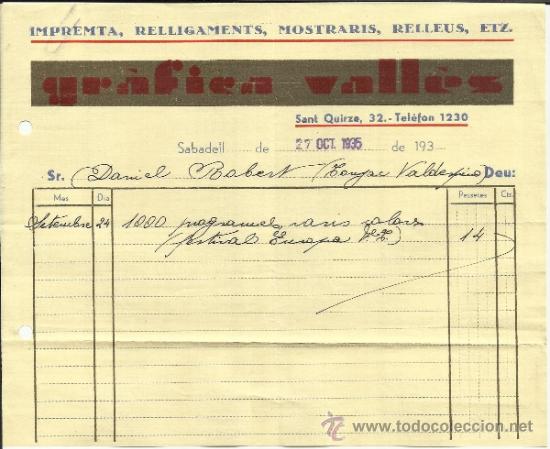 IMPREMTA, RELLIGAMENTS, MOSTRARIS, RELLEUS, ETZ.
gràfica vallès
Sant Quirze, 32.-Telèfon 1230
Sabadell de 27 OCT. 1935 de 193
Sr. Daniel Robert ( Valdespino) Deu:
Mes Dia Pessetes Cts.
Setembre 24 1000 programes varis colors 14
(festival Europa)
todocoleccion
www.todocoleccion.net